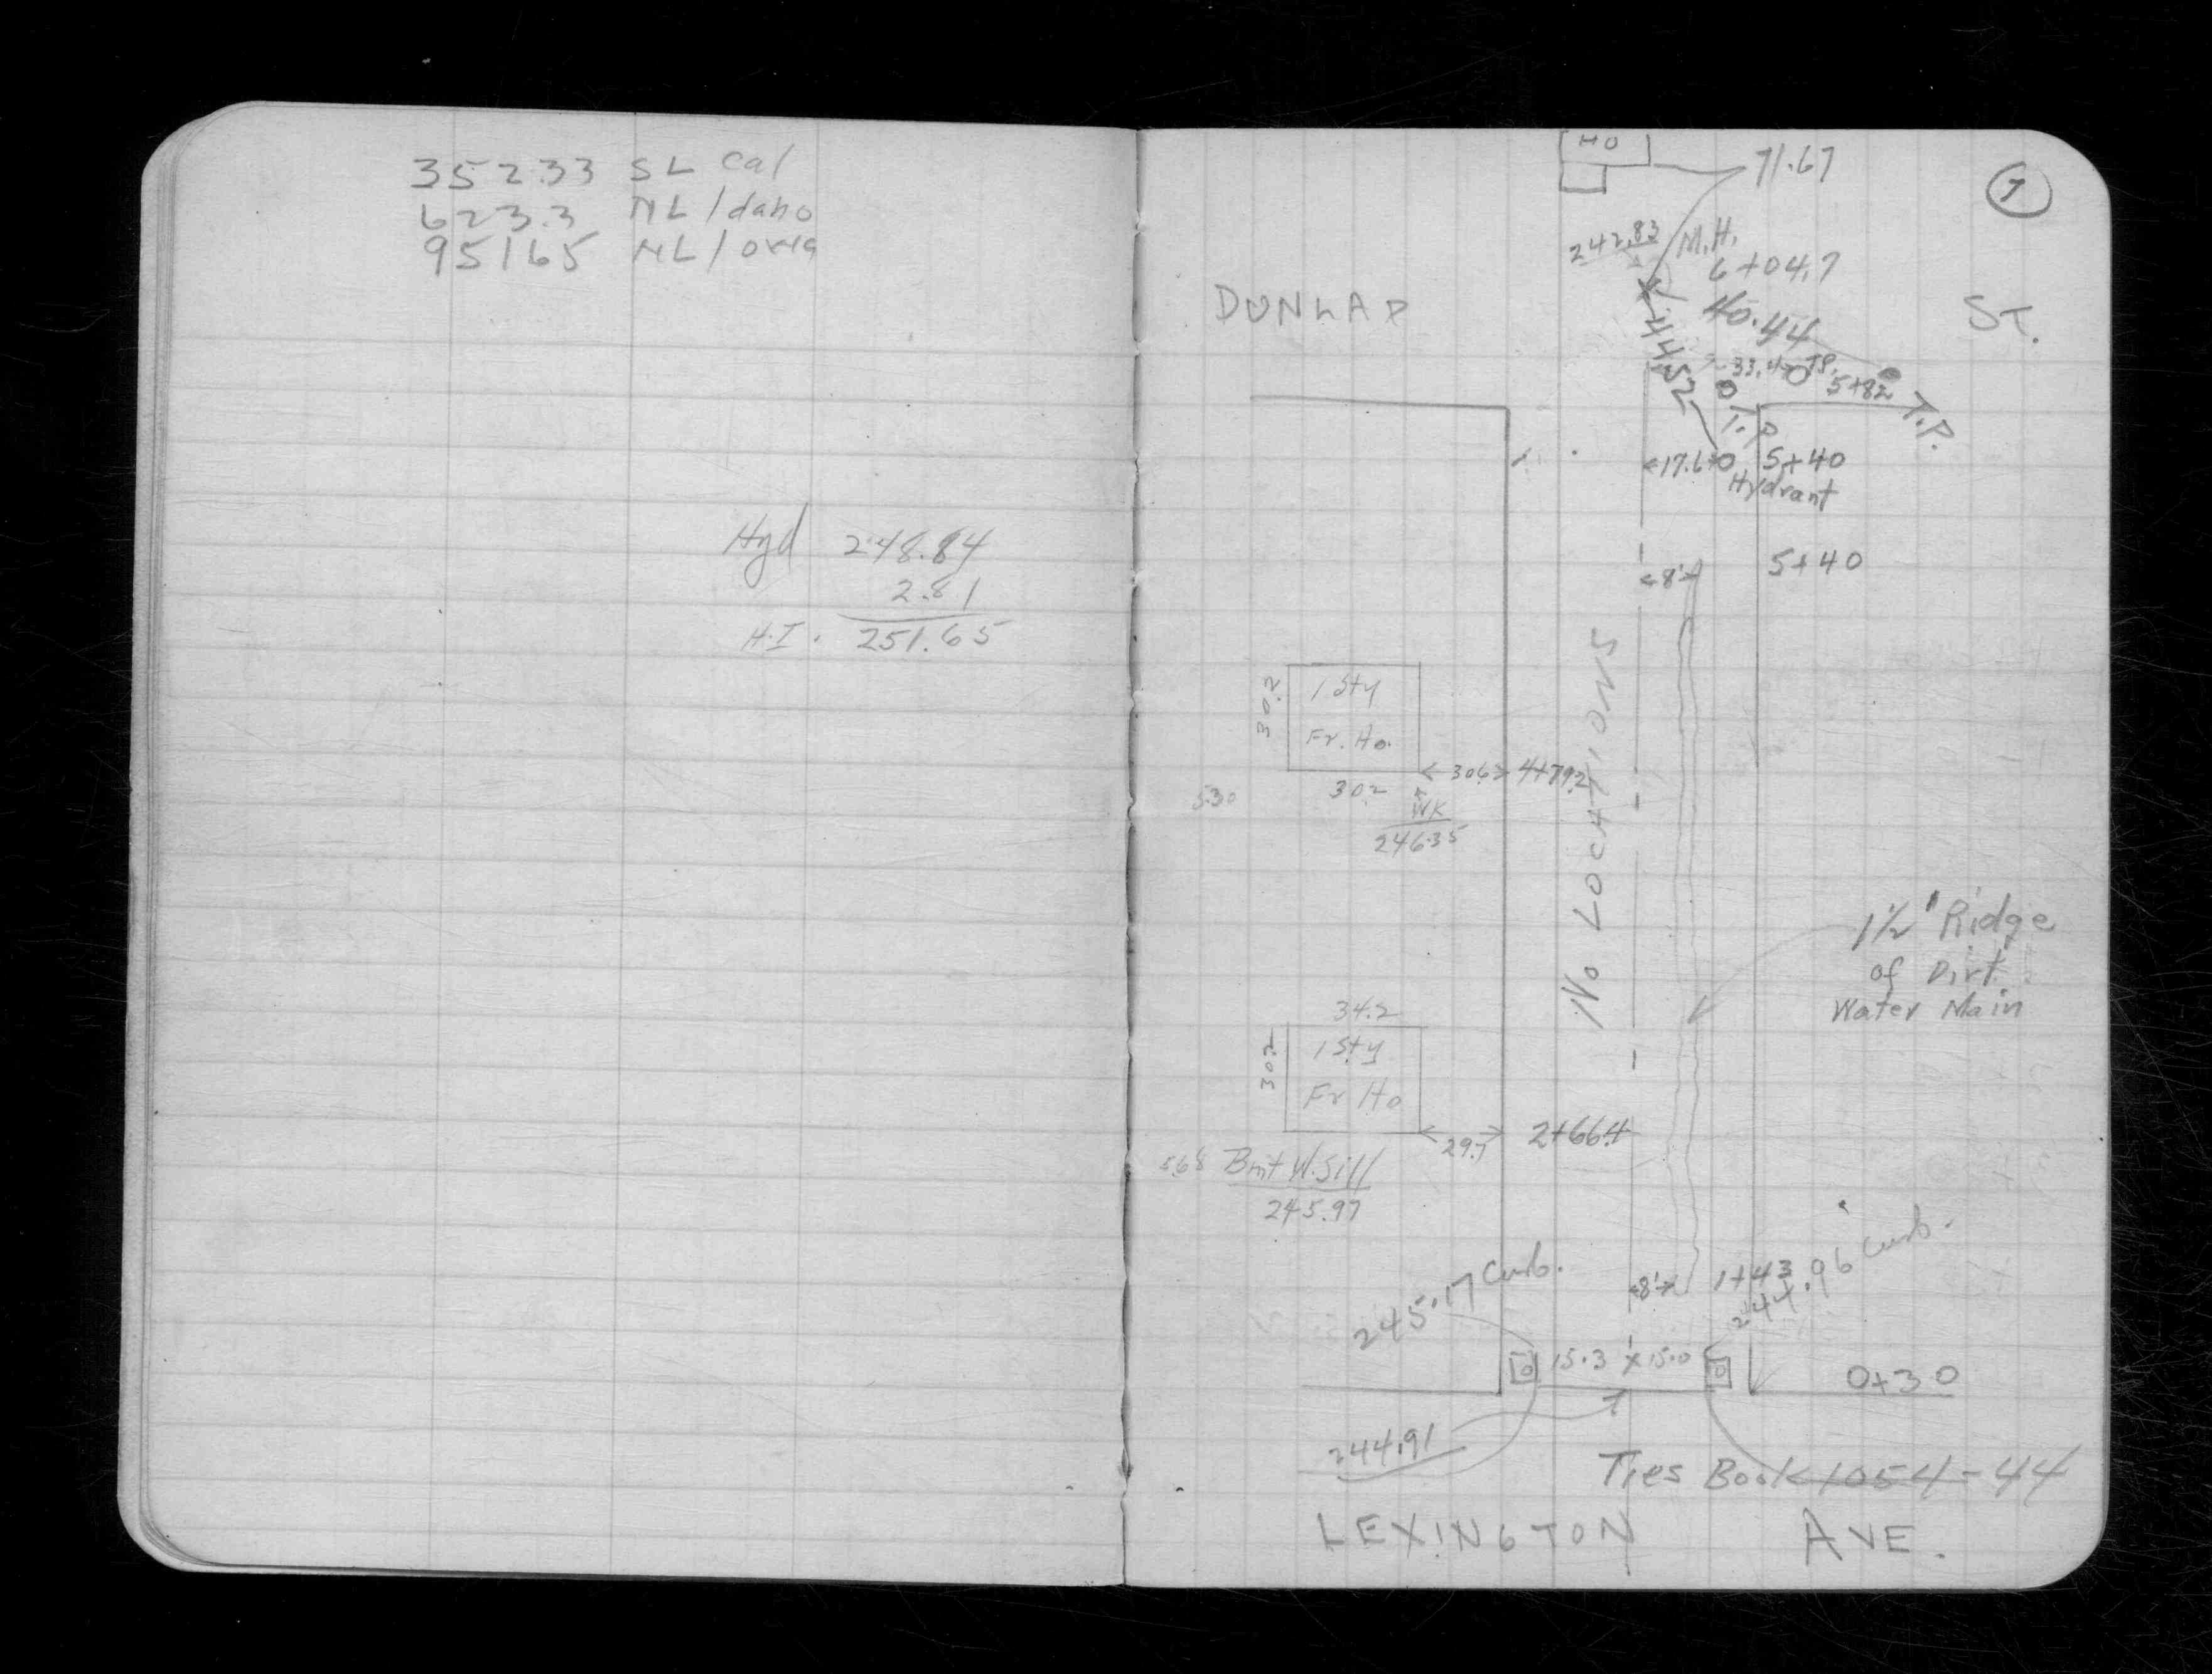 35233 SL Cal
623.3 NL Idaho
95165 NL
Hyd 248.84
2.81
H.I. 251.65
HO
71.67
7
242.83
M.H.
6+04.7
DUNLAP ST.
40.44
44.52
33.4 T.P.
5+82
T.P.
T.P.
17.6 5+40
Hydrant
8' 5+40
30.2
1 Sty
Fr. Ho.
30.6 4+79.2
5.30 30.2
WK
246.35
No LOCATIONS
1½' Ridge
of Dirt
Water Main
34.2
30.2
1 Sty
Fr Ho
29.7 2+66.4
5.68 Bmt W. Sill
245.97
245.17 Curb.
8' 1+43
244.96 Curb.
15.3 x 15.0
0+30
244.91
Ties Book 1054-44
LEXINGTON AVE.